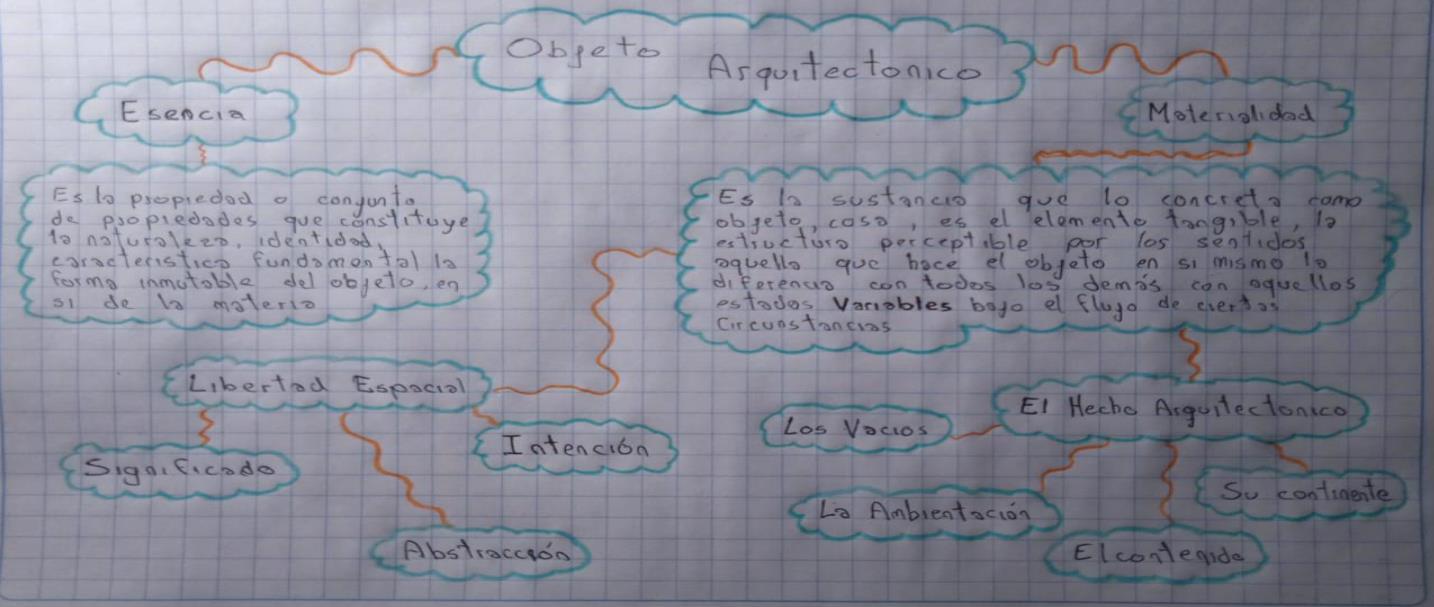 Objeto Arquitectonico
Esencia
Materialidad
Es la propiedad o conjunto
de propiedades que constituye
la naturaleza, identidad,
caracteristica fundamental la
forma inmutable del objeto, en
si de la materia
Es la sustancia que lo concreta como
objeto, cosa, es el elemento tangible, la
estructura perceptible por los sentidos
aquello que hace el objeto en si mismo lo
diferencia con todos los demás con aquellos
estados Variables bajo el flujo de ciertas
Circunstancias
Libertad Espacial
Significado
Intención
Abstracción
El Hecho Arquitectonico
Los Vacios
La Ambientación
Su continente
El contenido